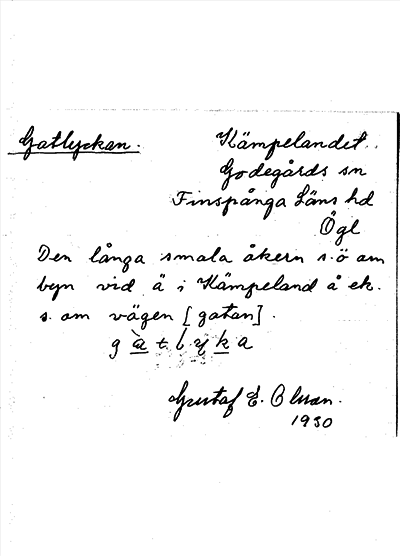 Gatlyckan.
Kämpelandet.
Godegårds sn
Finspånga Läns hd
Ögl
Den långa smala åkern s.ö om
byn vid ä i Kämpeland å ek.
s. om vägen [gatan].
gàtlyka
Gustaf E. Olsson.
1930